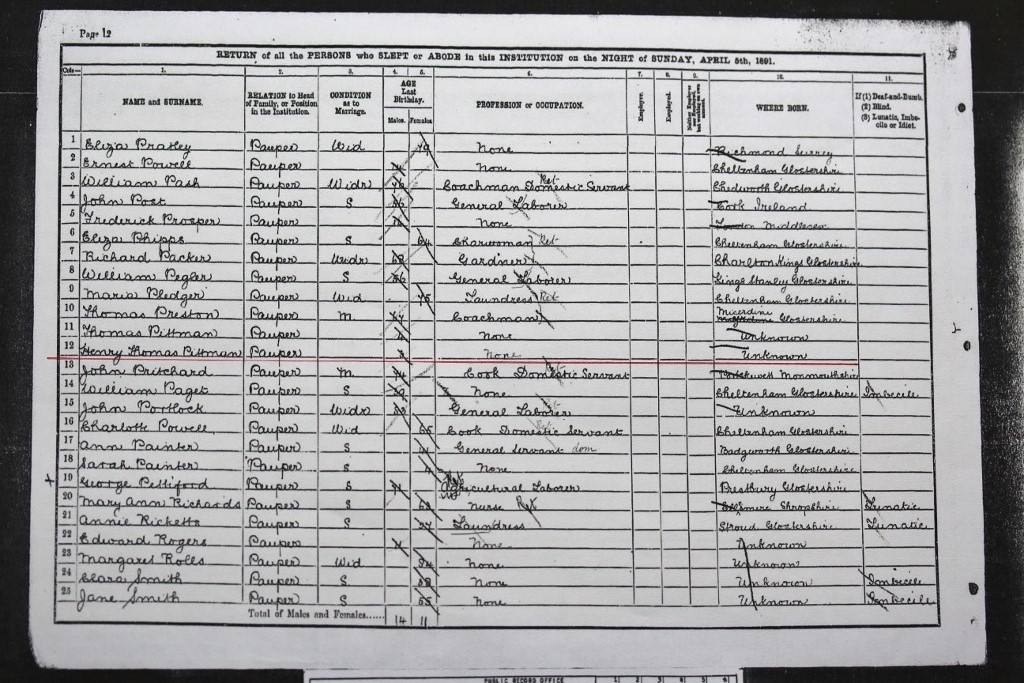 Page 12
RETURN of all the PERSONS who SLEPT or ABODE in this INSTITUTION on the NIGHT of SUNDAY, APRIL 5th, 1891.
Cols— 1. 2. 3. 4. 5. 6. 7. 8. 9. 10. 11.
NAME and SURNAME. RELATION to Head of Family, or Position in the Institution. CONDITION as to Marriage. AGE Last Birthday. Males. Females PROFESSION or OCCUPATION. Employer. Employed. WHERE BORN. If (1) Deaf-and-Dumb. (2) Blind. (3) Lunatic, Imbecile or Idiot.
1 Eliza Pratley Pauper Wid 49 None Richmond Surrey
2 Ernest Powell Pauper None Cheltenham Glostershire
3 William Pash Pauper Widr Coachman Domestic Servant Ret Chedworth Glostershire
4 John Post Pauper S General Laborer Cork Ireland
5 Frederick Prosper Pauper None London Middlesex
6 Eliza Phipps Pauper S 64 Charwoman Ret Cheltenham Glostershire
7 Richard Packer Pauper Widr Gardner Charlton Kings Glostershire
8 William Pegler Pauper S General Laborer Kings Stanley Glostershire
9 Maria Pledger Pauper Wid 75 Laundress Ret Cheltenham Glostershire
10 Thomas Preston Pauper M. Coachman Glostershire
11 Thomas Pittman Pauper None Unknown
12 Henry Thomas Pittman Pauper None Unknown
13 John Pritchard Pauper M Cook Domestic Servant Portskewett Monmouthshire
14 William Paget Pauper S None Cheltenham Glostershire Imbecile
15 John Portlock Pauper Widr General Laborer Unknown
16 Charlotte Powell Pauper Wid 65 Cook Domestic Servant Cheltenham Glostershire
17 Ann Painter Pauper S General Servant dom Badgworth Glostershire
18 Sarah Painter Pauper S None Cheltenham Glostershire
19 George Pettiford Pauper S Agricultural Laborer Prestbury Glostershire
20 Mary Ann Richards Pauper S Nurse Ret Shropshire Lunatic
21 Annie Ricketts Pauper S 27 Laundress Stroud Glostershire Lunatic
22 Edward Rogers Pauper None Unknown
23 Margaret Rolls Pauper Wid None Unknown
24 Clara Smith Pauper S None Unknown Imbecile
25 Jane Smith Pauper S 55 None Unknown Imbecile
Total of Males and Females...... 14 11
PUBLIC RECORD OFFICE 1 2 3 4 5 6